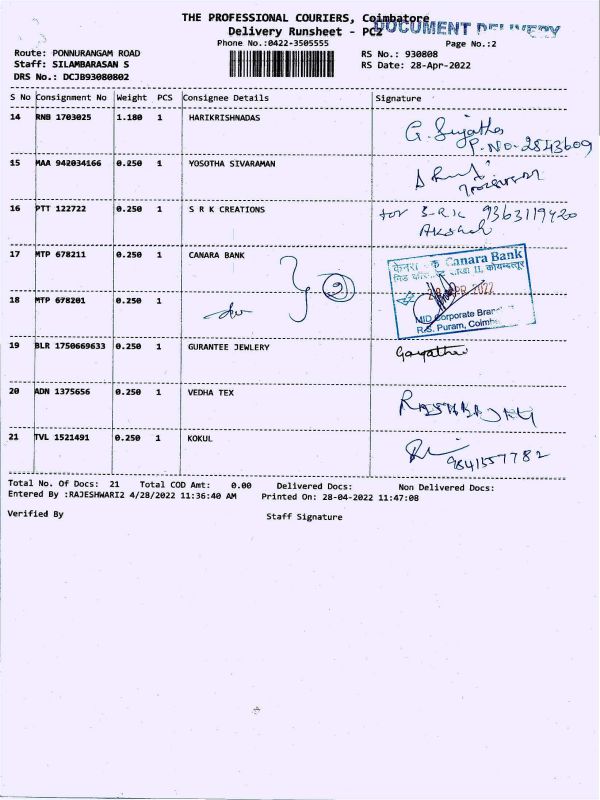 THE PROFESSIONAL COURIERS, Coimbatore
Delivery Runsheet - PC2
DOCUMENT DELIVERY
Phone No.:0422-3505555
Page No.:2
Route: PONNURANGAM ROAD
RS No.: 930808
Staff: SILAMBARASAN S
RS Date: 28-Apr-2022
DRS No.: DCJB93080802
S No Consignment No Weight PCS Consignee Details Signature
14 RNB 1703025 1.180 1 HARIKRISHNADAS
G. Sujatha
P.No-2843609
15 MAA 942034166 0.250 1 YOSOTHA SIVARAMAN
16 PTT 122722 0.250 1 S R K CREATIONS
for S-R.K 9363119420
Akash
17 MTP 678211 0.250 1 CANARA BANK
2
केनरा Canara Bank
शाखा II, कोयम्बत्तूर
APR 2022
MID Corporate Branch
R.S. Puram, Coimb
18 MTP 678201 0.250 1
19 BLR 1750669633 0.250 1 GURANTEE JEWLERY
Gayathri
20 ADN 1375656 0.250 1 VEDHA TEX
21 TVL 1521491 0.250 1 KOKUL
9841557782
Total No. Of Docs: 21 Total COD Amt: 0.00 Delivered Docs: Non Delivered Docs:
Entered By :RAJESHWARI2 4/28/2022 11:36:40 AM Printed On: 28-04-2022 11:47:08
Verified By Staff Signature